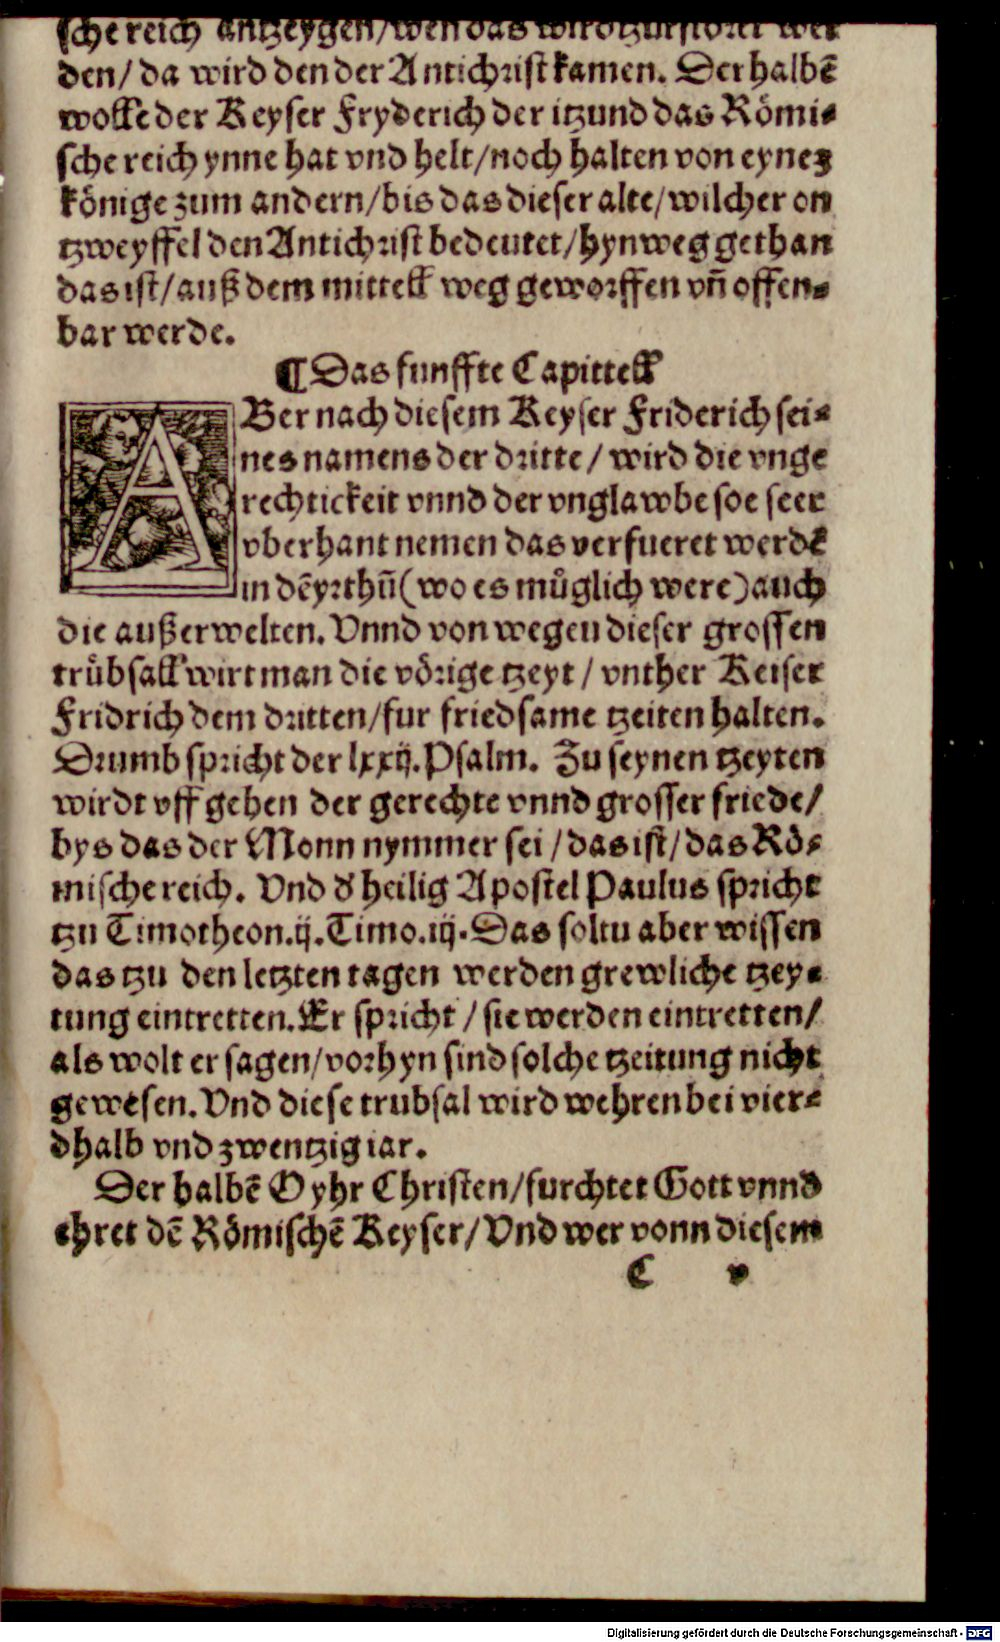 sche reich antzeygen/wen das wirdt zurstoret wer
den/ da wird den der Antichrist kamen. Der halbē
wolle der Keyser Fryderich der itzund das Römi-
sche reich ynne hat vnd helt/noch halten von eynez
könige zum andern/bis das dieser alte/wilcher on
tzweyffel den Antichrist bedeutet/hynweg gethan
das ist/auß dem mittell weg geworffen vñ offen-
bar werde.
¶ Das funffte Capittell
ABer nach diesem Keyser Friderich sei-
nes namens der dritte / wird die vnge
rechtickeit vnnd der vnglawbe soe seer
vberhant nemen das verfueret werdē
in dē yrthū (wo es můglich were) auch
die außerwelten. Vnnd von wegen dieser grossen
trůbsall wirt man die vörige tzeyt / vnther Keiser
Fridrich dem dritten/fur friedsame tzeiten halten.
Drumb spricht der lxxij. Psalm. Zu seynen tzeyten
wirdt vff gehen der gerechte vnnd grosser friede/
bys das der Monn nymmer sei / das ist/ das Rö-
mische reich. Vnd d' heilig Apostel Paulus spricht
tzu Timotheon. ij. Timo. iij. Das soltu aber wissen
das tzu den letzten tagen werden grewliche tzey-
tung eintretten. Er spricht / sie werden eintretten/
als wolt er sagen/vorhyn sind solche tzeitung nicht
gewesen. Vnd diese trubsal wird wehren bei vier-
dhalb vnd zwentzig iar.
Der halbē O yhr Christen/furchtet Gott vnnd
ehret dē Römischē Keyser/ Vnd wer vonn diesem
C v
Digitalisierung gefördert durch die Deutsche Forschungsgemeinschaft - DFG